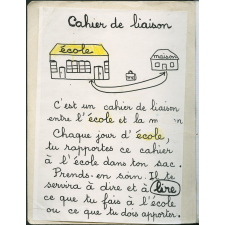 Cahier de liaison
école
maison
C'est un cahier de liaison
entre l'école et la
Chaque jour d'école,
tu rapportes ce cahier
à l'école dans ton sac.
Prends-en soin. Il te
servira à dire et à lire
ce que tu fais à l'école
ou ce que tu dois apporter.